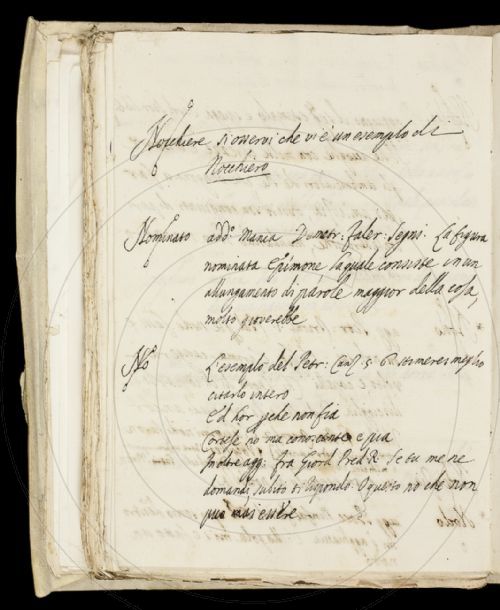 Nocchiere si osservi che vi è un esemplo di
Nocchiero
Nominato add.º Mania Demetr: faler: Segni: La figura
nominata Epimone la quale consiste in un
allungamento di parole maggior della cosa,
molto gioverebbe
Nò L'esemplo del Petr: Canz 5 meglio
citarlo intero
Ed hor perche non fia
Cortese nò ma conoscente e pia
Inoltre agg: fra Giord Pred R. Se tu me ne
domandi, subito ti rispondo. O questo nò che non
può mai essere